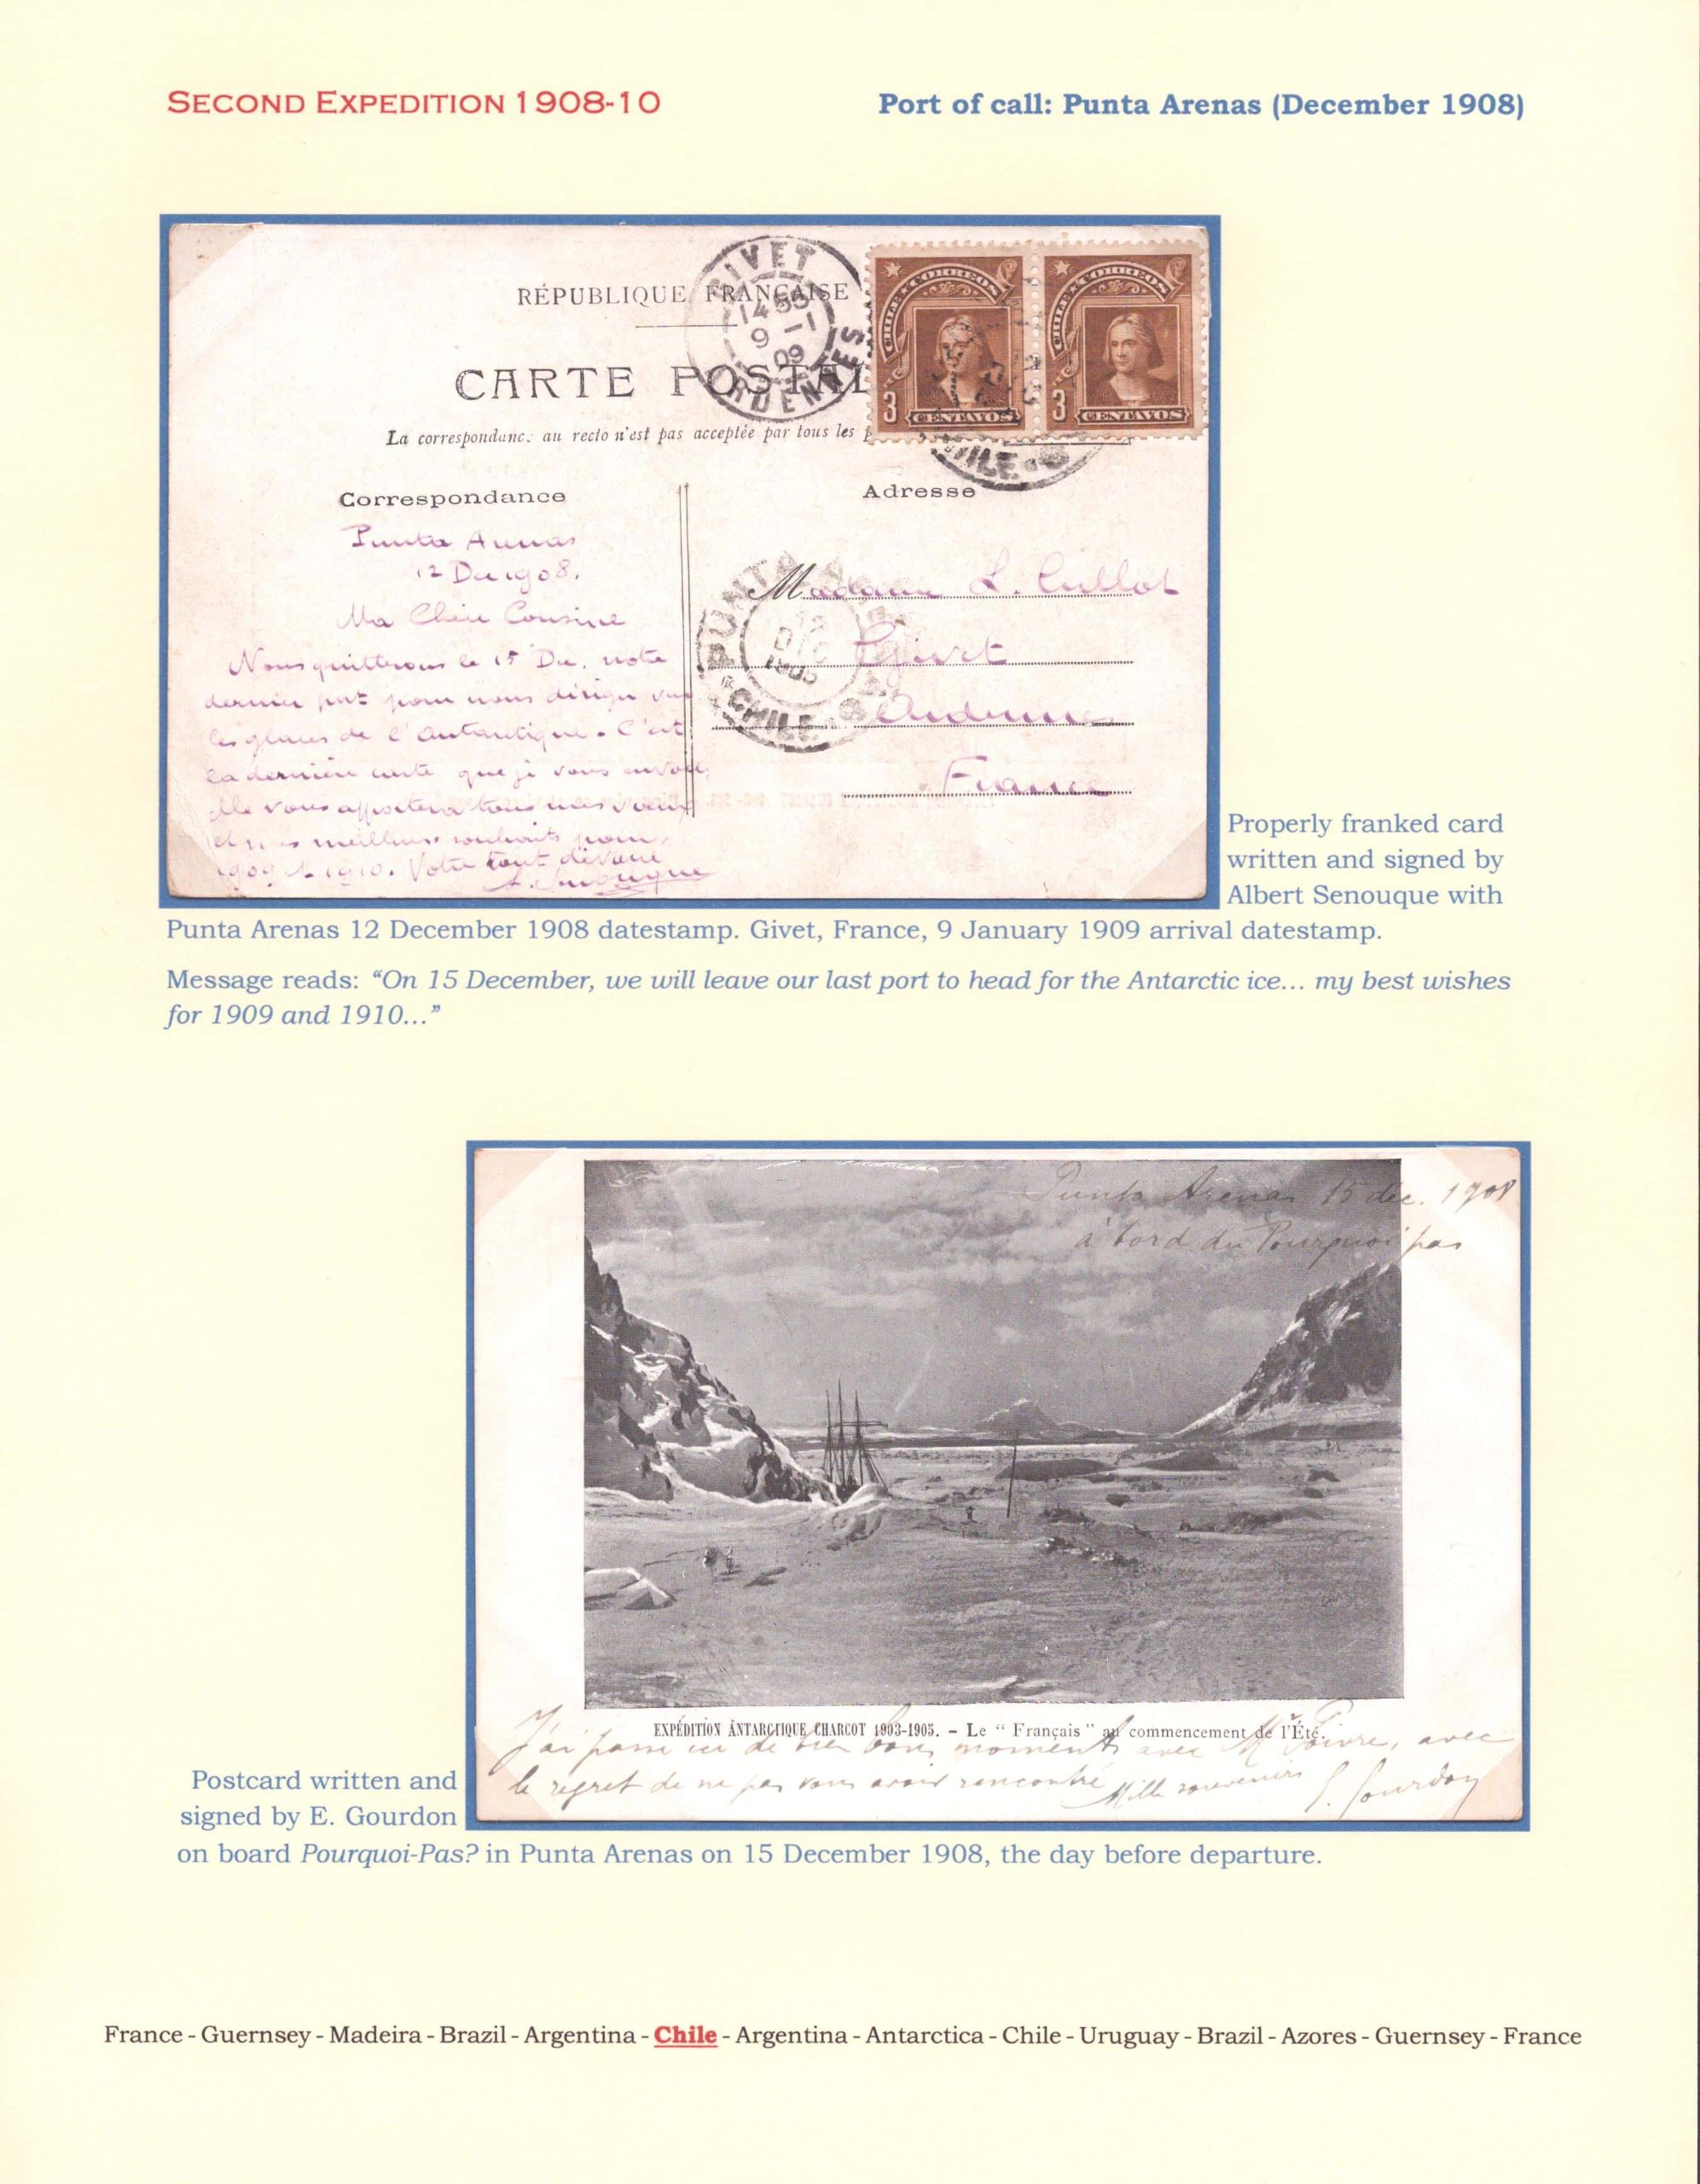 SECOND EXPEDITION 1908-10
Port of call: Punta Arenas (December 1908)
RÉPUBLIQUE FRANÇAISE
GIVET
14 55
9 -1
09
ARDENNES
CHILE CORREOS
3 CENTAVOS
CHILE CORREOS
3 CENTAVOS
CHILE
CARTE POSTAL
La correspondance au recto n'est pas acceptée par tous les p
Correspondance
Adresse
Punta Arenas
12 Dec 1908.
Ma Chère Cousine
Nous quitterons le 15 Dec. notre
dernier port pour nous diriger vers
les glaces de l'Antarctique. C'est
la dernière carte que je vous envoie,
elle vous apportera tous mes vœux
et mes meilleurs souhaits pour
1909 et 1910. Votre tout dévoué
A. Senouque
Madame L.
Givet
Ardennes
France
PUNTA ARENAS
12
DIC
1908
CHILE
Properly franked card
written and signed by
Albert Senouque with
Punta Arenas 12 December 1908 datestamp. Givet, France, 9 January 1909 arrival datestamp.
Message reads: “On 15 December, we will leave our last port to head for the Antarctic ice... my best wishes
for 1909 and 1910...”
Punta Arenas 15 dec. 1908
à bord du Pourquoi pas
EXPÉDITION ANTARCTIQUE CHARCOT 1903-1905. - Le “ Français ” au commencement de l'Été.
J'ai passé ici de bien bons moments avec Mr Poivre, avec
le regret de ne pas vous avoir rencontré
Mille souvenirs E. Gourdon
Postcard written and
signed by E. Gourdon
on board Pourquoi-Pas? in Punta Arenas on 15 December 1908, the day before departure.
France - Guernsey - Madeira - Brazil - Argentina - Chile - Argentina - Antarctica - Chile - Uruguay - Brazil - Azores - Guernsey - France